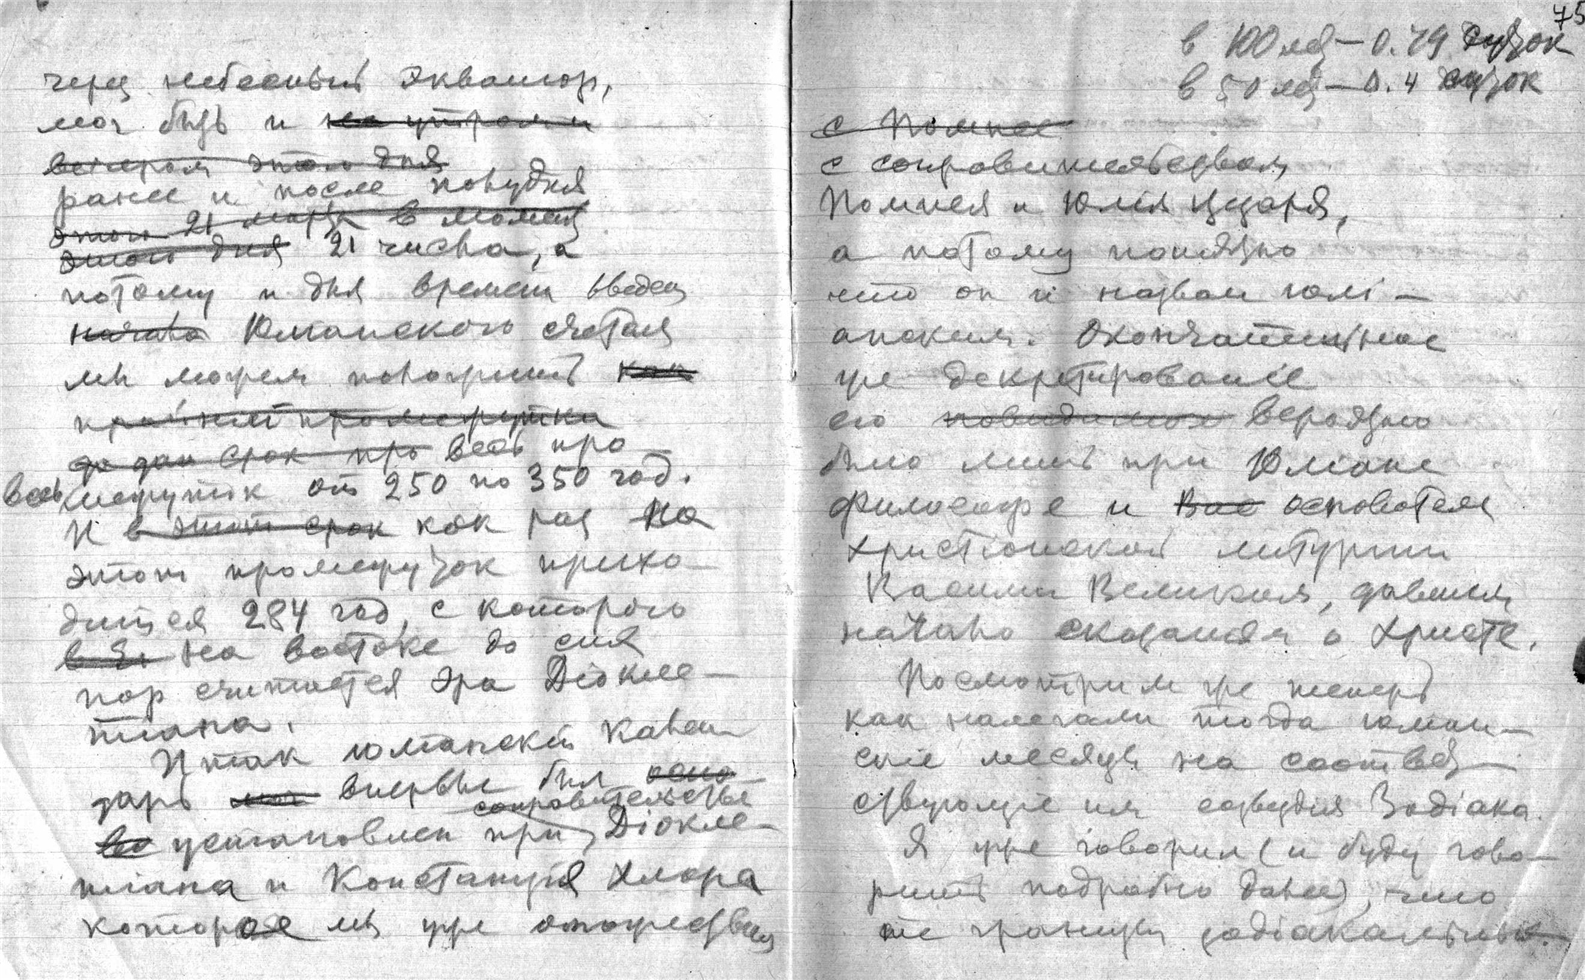 через небесный экватор,
мог быть и не утром и
вечером этого дня
ранее и после полудня
этого 21 марта в момент
этого дня 21 числа, а
потому и для времени введен
начала Юлианского счета
мы можем повторить как
крайний промежутки
да дан срок про весь про
весь межуток от 250 по 350 год.
И в этот срок как раз на
этот промежуток прихо-
дится 284 год, с которого
на востоке до сих
пор считается эра Діокле-
тиана.
Итак юлианскій кален-
дарь впервые был осно
соправительстве
во установлен при Діокле-
тиана и Констанція Хлора
которое мы уже отожествили
75
в 100 лет — 0.79 суток
в 50 лет — 0.4 суток
с Помпее
с соправительством
Помпея и Юлія Цезаря,
а потому понятно
что он и назван юлі-
анским. Окончательное
же декретированіе
его повидимому вероятно
было лишь при Юлиане
философе и Вас основателе
христіанской литургии
Василии Великом, давшем
начало сказаніям о Христе.
Посмотрим же теперь
как налегали тогда юлиан-
скіе месяцы на соответ-
ствующіе им созвездія Зодіака.
Я уже говорил (и буду гово-
рить подробно далее), что
те границы зодіакальных